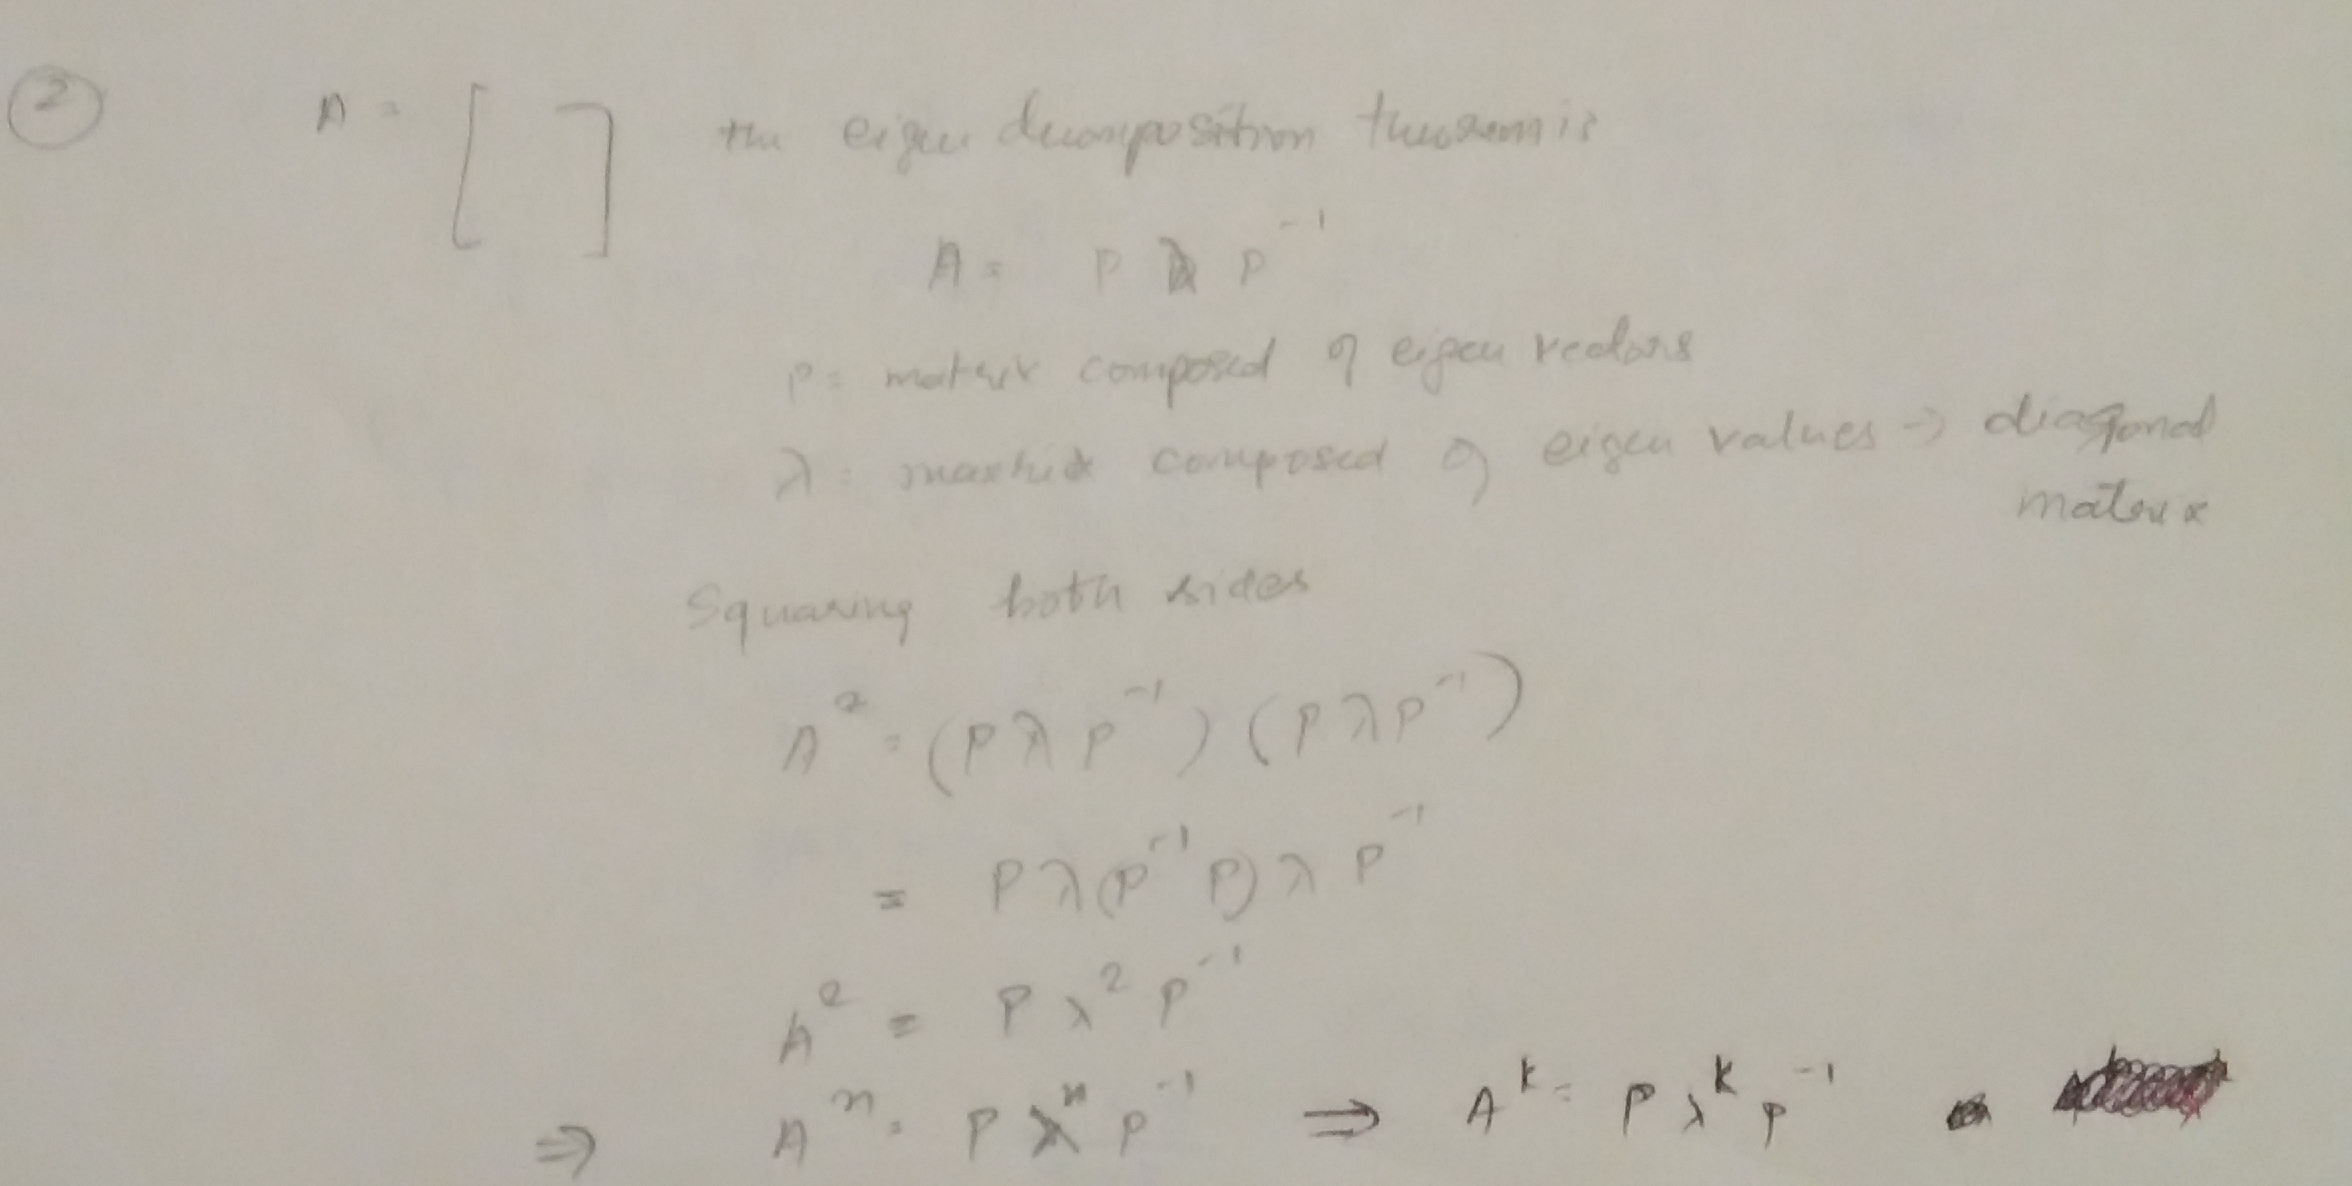 ② A = [ ] the eigen decomposition theorem is
A = P λ P⁻¹
P = matrix composed of eigen vectors
λ = matrix composed of eigen values → diagonal
matrix
Squaring both sides
A² = (P λ P⁻¹) (P λ P⁻¹)
= P λ (P⁻¹ P) λ P⁻¹
A² = P λ² P⁻¹
⇒ Aⁿ = P λⁿ P⁻¹ ⇒ Aᵏ = P λᵏ P⁻¹